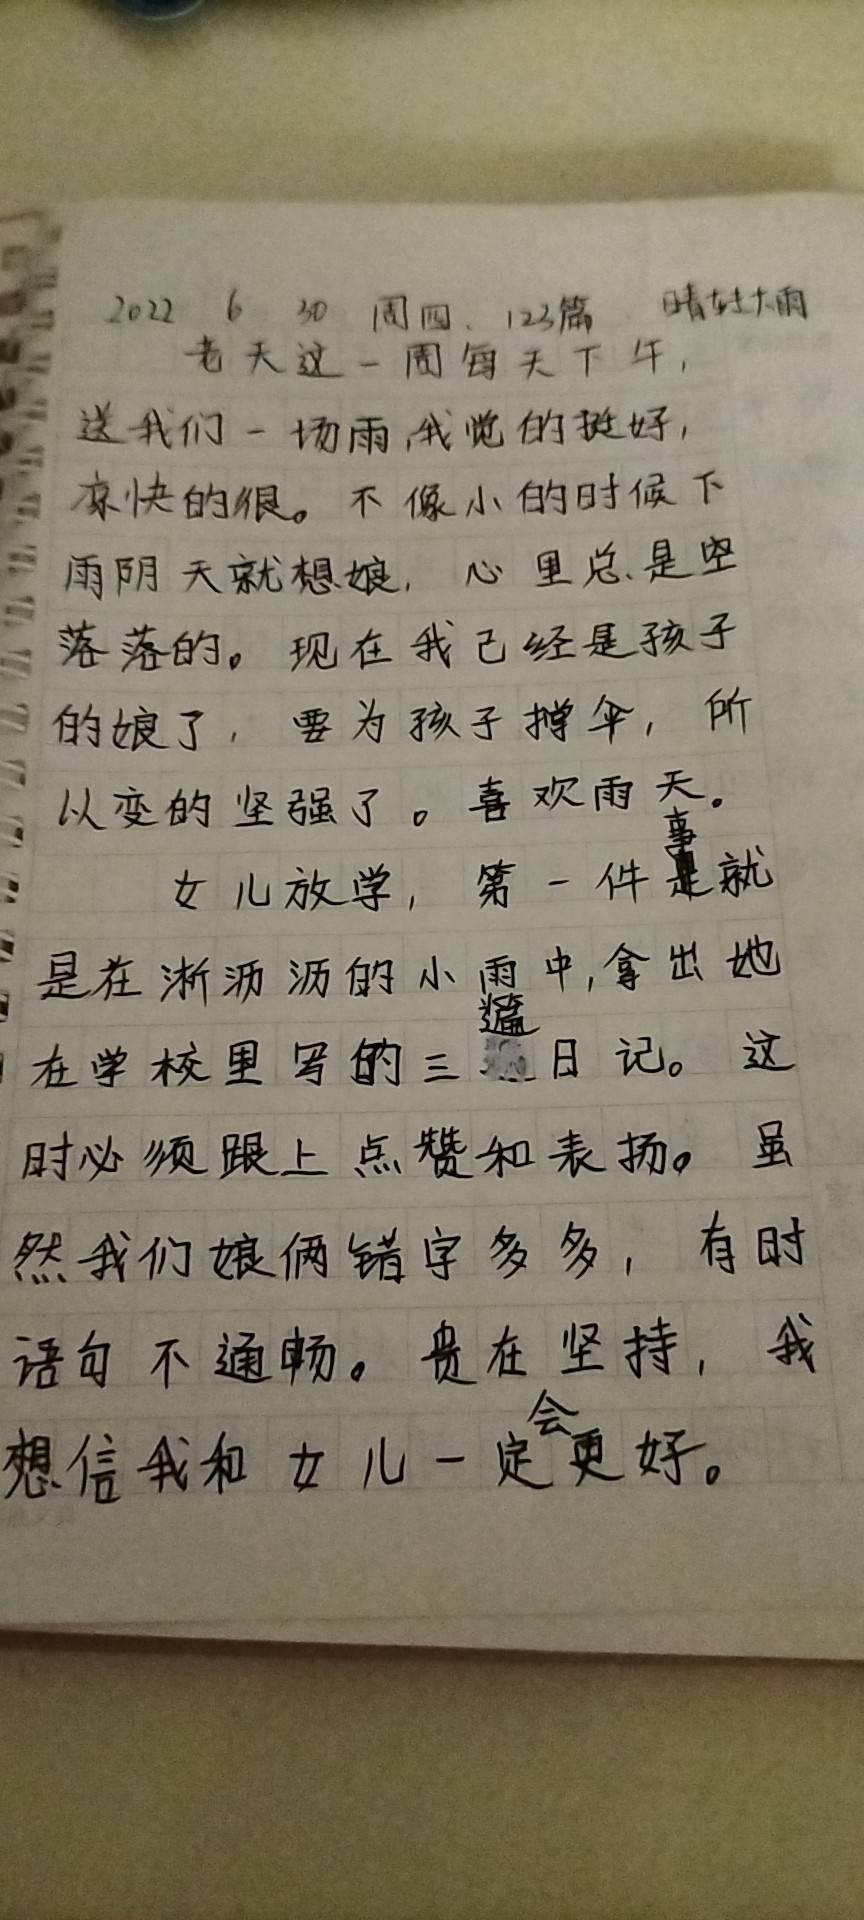 2022 6 30 周四、123篇 晴转大雨
老天这一周每天下午，
送我们一场雨，我觉的挺好，
凉快的很。不像小的时候下
雨阴天就想娘，心里总是空
落落的。现在我已经是孩子
的娘了，要为孩子撑伞，所
以变的坚强了。喜欢雨天。
女儿放学，第一件事就
是在淅沥沥的小雨中，拿出她
在学校里写的三篇日记。这
时必须跟上点赞和表扬。虽
然我们娘俩错字多多，有时
语句不通畅。贵在坚持，我
想信我和女儿一定会更好。